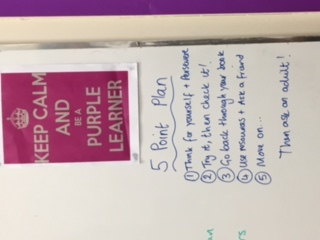 KEEP CALM
AND
BE A
PURPLE
LEARNER
5 Point Plan
① Think for yourself + Persevere
② Try it, then check it!
③ Go back through your book
④ Use resources + Ask a friend
⑤ Move on...
Then ask an adult!